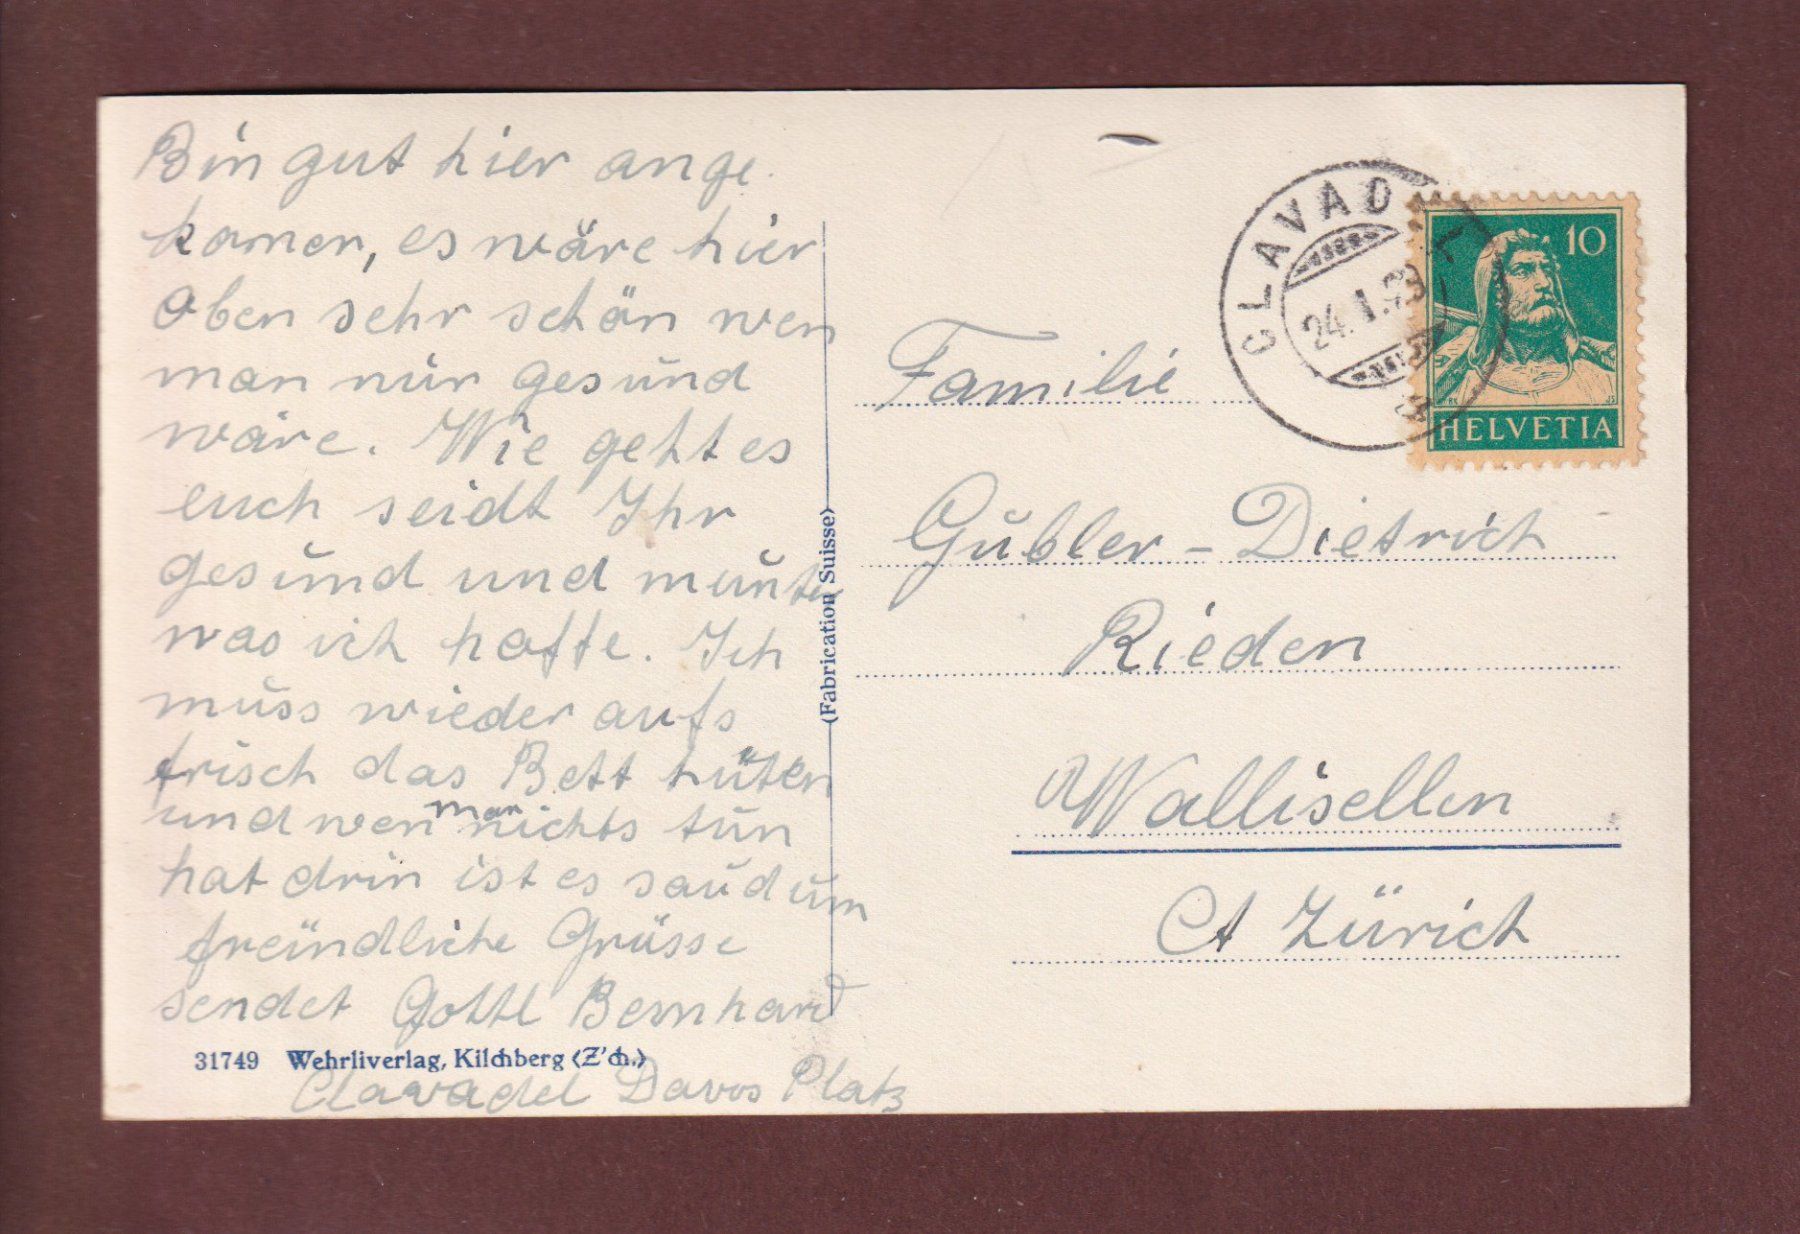 Bin gut hier ange
komen, es wäre hier
oben sehr schön wen
man nur gesund
wäre. Wie geht es
euch seidt Ihr
gesund und munter
was ich hoffe. Ich
muss wieder aufs
frisch das Bett hüten
und wen man nichts tun
hat drin ist es saudum
freündliche Grüsse
sendet Gottl Bernhard
Clavadel Davos Platz
31749 Wehrliverlag, Kilchberg (Z'ch.)
(Fabrication Suisse)
CLAVADEL
24. 1.
10
HELVETIA
Familie
Gubler - Dietrich
Rieden
Wallisellen
Ct Zürich